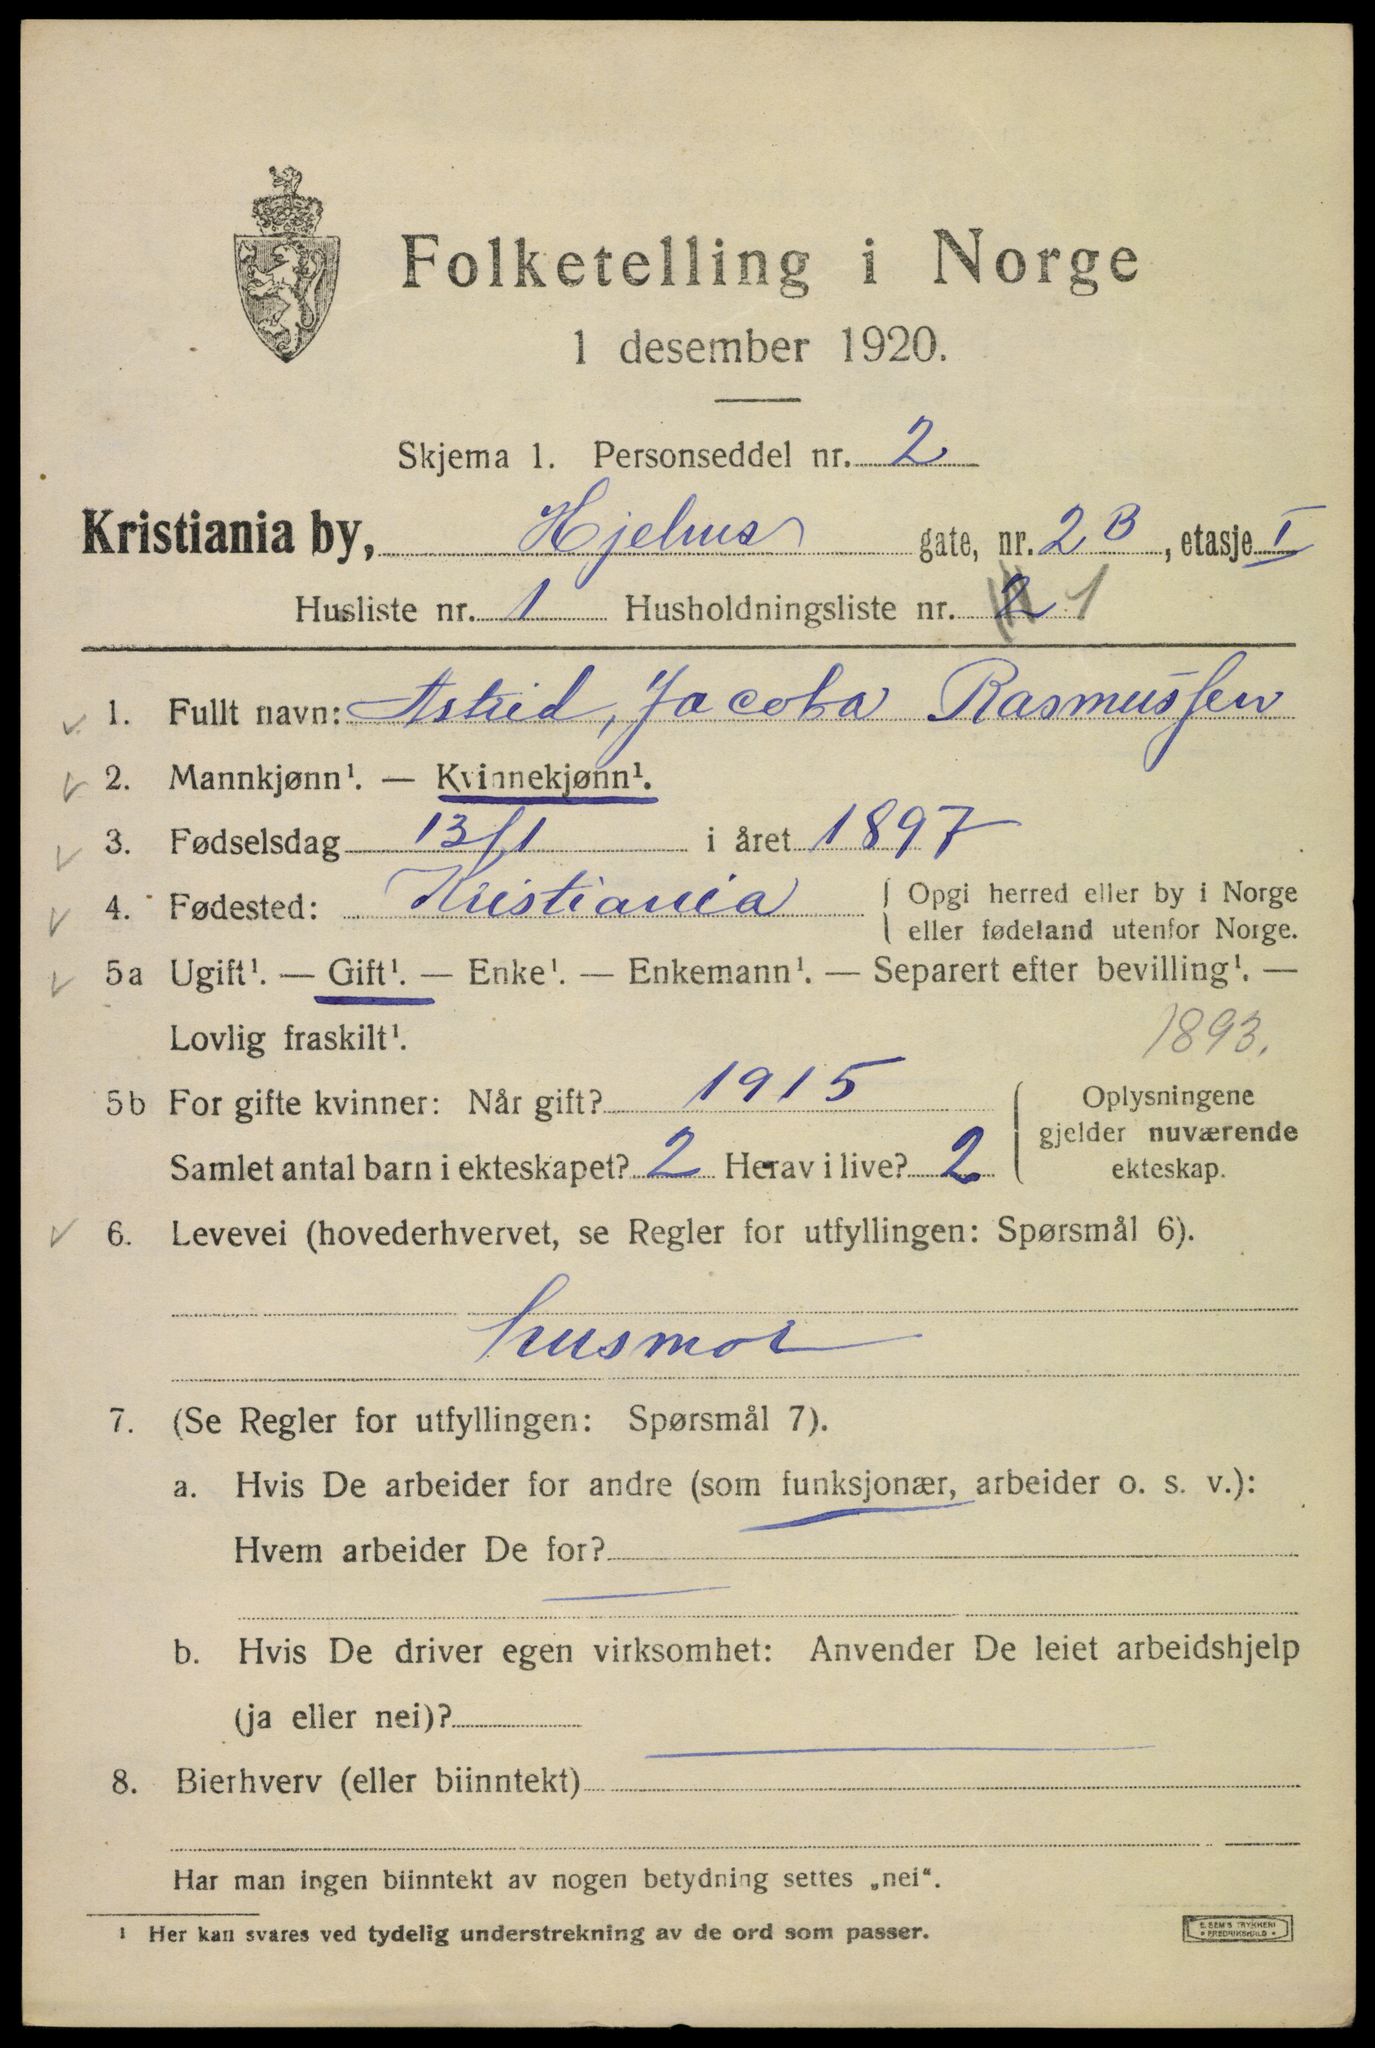 Folketelling i Norge
1 desember 1920.
Skjema 1. Personseddel nr. 2
Kristiania by, Hjelms gate, nr. 2 B, etasje I
Husliste nr. 1 Husholdningsliste nr. 2 1
1. Fullt navn: Astrid, Jacoba Rasmussen
2. Mannkjønn¹. — Kvinnekjønn¹.
3. Fødselsdag 13/1 i året 1897
4. Fødested: Kristiania Opgi herred eller by i Norge
eller fødeland utenfor Norge.
5a Ugift¹. — Gift¹. — Enke¹. — Enkemann¹. — Separert efter bevilling¹. —
Lovlig fraskilt¹. 1893.
5b For gifte kvinner: Når gift? 1915 Oplysningene
gjelder nuværende
Samlet antal barn i ekteskapet? 2 Herav i live? 2 ekteskap.
6. Levevei (hovederhvervet, se Regler for utfyllingen: Spørsmål 6).
husmor
7. (Se Regler for utfyllingen: Spørsmål 7).
a. Hvis De arbeider for andre (som funksjonær, arbeider o. s. v.):
Hvem arbeider De for?
b. Hvis De driver egen virksomhet: Anvender De leiet arbeidshjelp
(ja eller nei)?
8. Bierhverv (eller biinntekt)
Har man ingen biinntekt av nogen betydning settes „nei“.
¹ Her kan svares ved tydelig understrekning av de ord som passer.
E. SEM'S TRYKKERI
* FREDRIKSHALD *